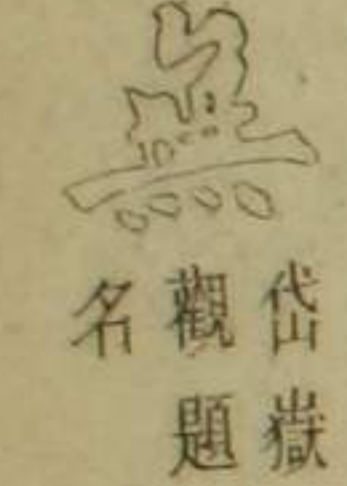 岱嶽
觀題
名